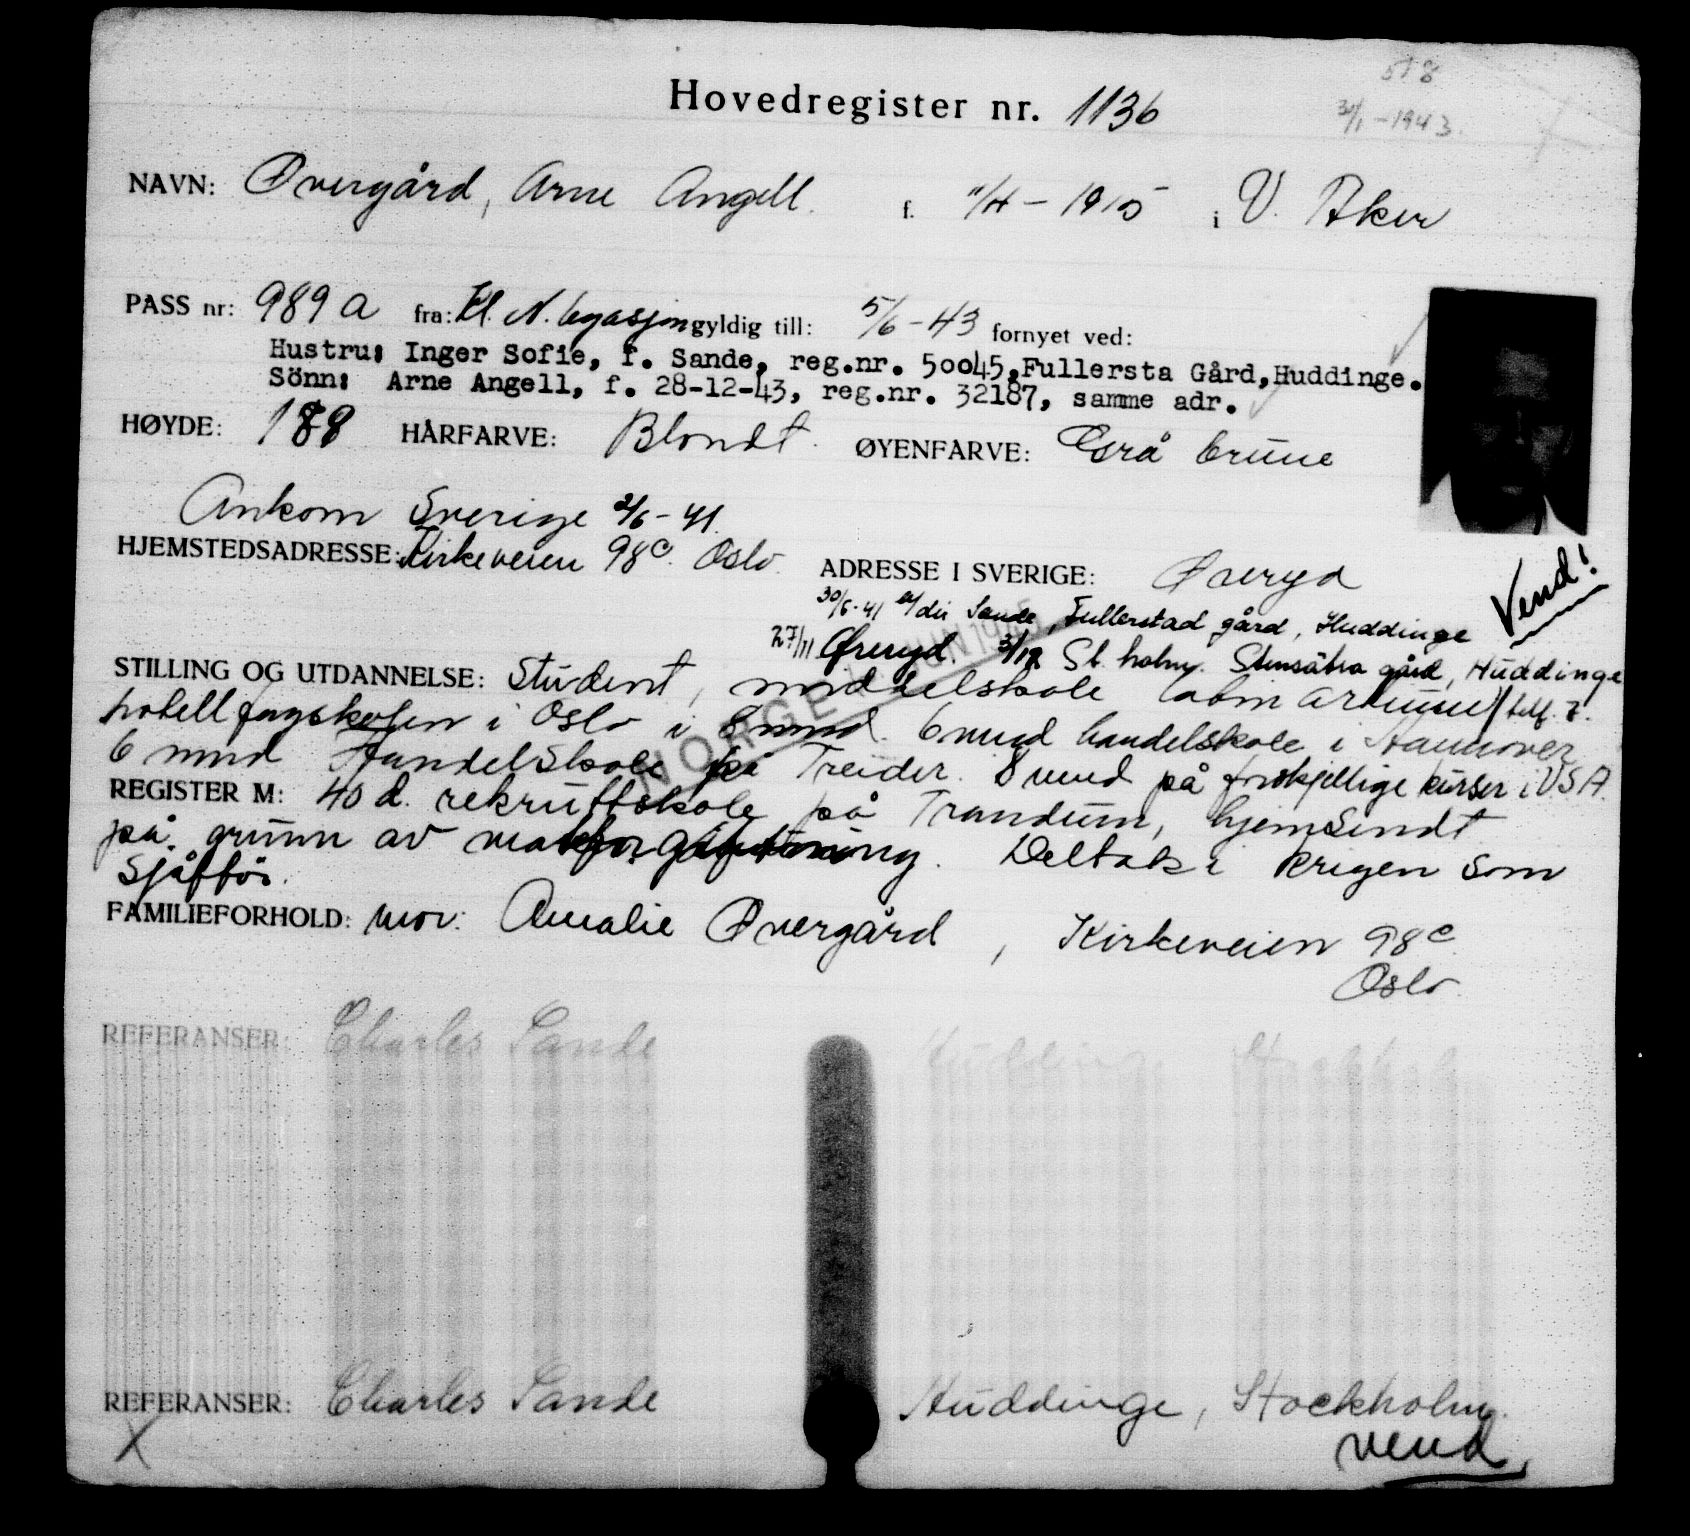 518
31/1-1943.
Hovedregister nr. 1136
NAVN: Øvergård, Arne Angell. f. 11/4-1915 i V. Aker
PASS nr: 989 A fra: Kl. N. legasjon gyldig till: 5/6-43 fornyet ved:
Hustru: Inger Sofie, f. Sande, reg.nr. 50045, Fullersta Gård, Huddinge.
Sönn: Arne Angell, f. 28-12-43, reg.nr. 32187, samme adr.
HØYDE: 188 HÅRFARVE: Blondt. ØYENFARVE: Grå brune
Ankom Sverige 2/6-41.
HJEMSTEDSADRESSE: Kirkeveien 98c. Oslo. ADRESSE I SVERIGE: Øreryd
Vend!
30/6-41 Sande, Fullerstad gård, Huddinge
27/11 Øreryd. 3/12 St. holm. Stensätra gård, Huddinge
NORGE JUNI
STILLING OG UTDANNELSE: Student, middelskole
hotellfagskolen i Oslo i 8 mnd. 6 mnd handelskole i Hannover
6 mnd Handelskole på Treider. 8 mnd på forskjellige kurser i U.S.A.
REGISTER M: 40 d. rekruttskole på Trandum, hjemsendt
på grunn av Deltok i krigen som
sjåffør.
FAMILIEFORHOLD: mor: Amalie Øvergård, Kirkeveien 98c
Oslo.
REFERANSER: Charles Sande Huddinge Stockholm
REFERANSER: Charles Sande Huddinge, Stockholm.
X
vend,